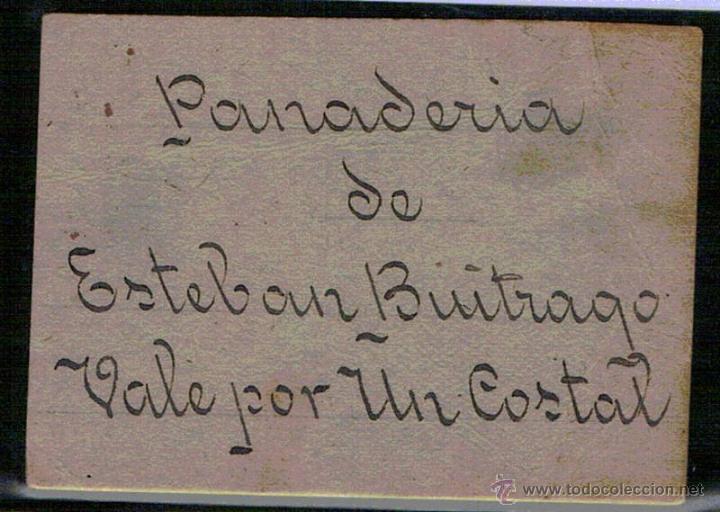 Panaderia
de
Esteban Buitrago
Vale por Un Costal
© www.todocoleccion.net